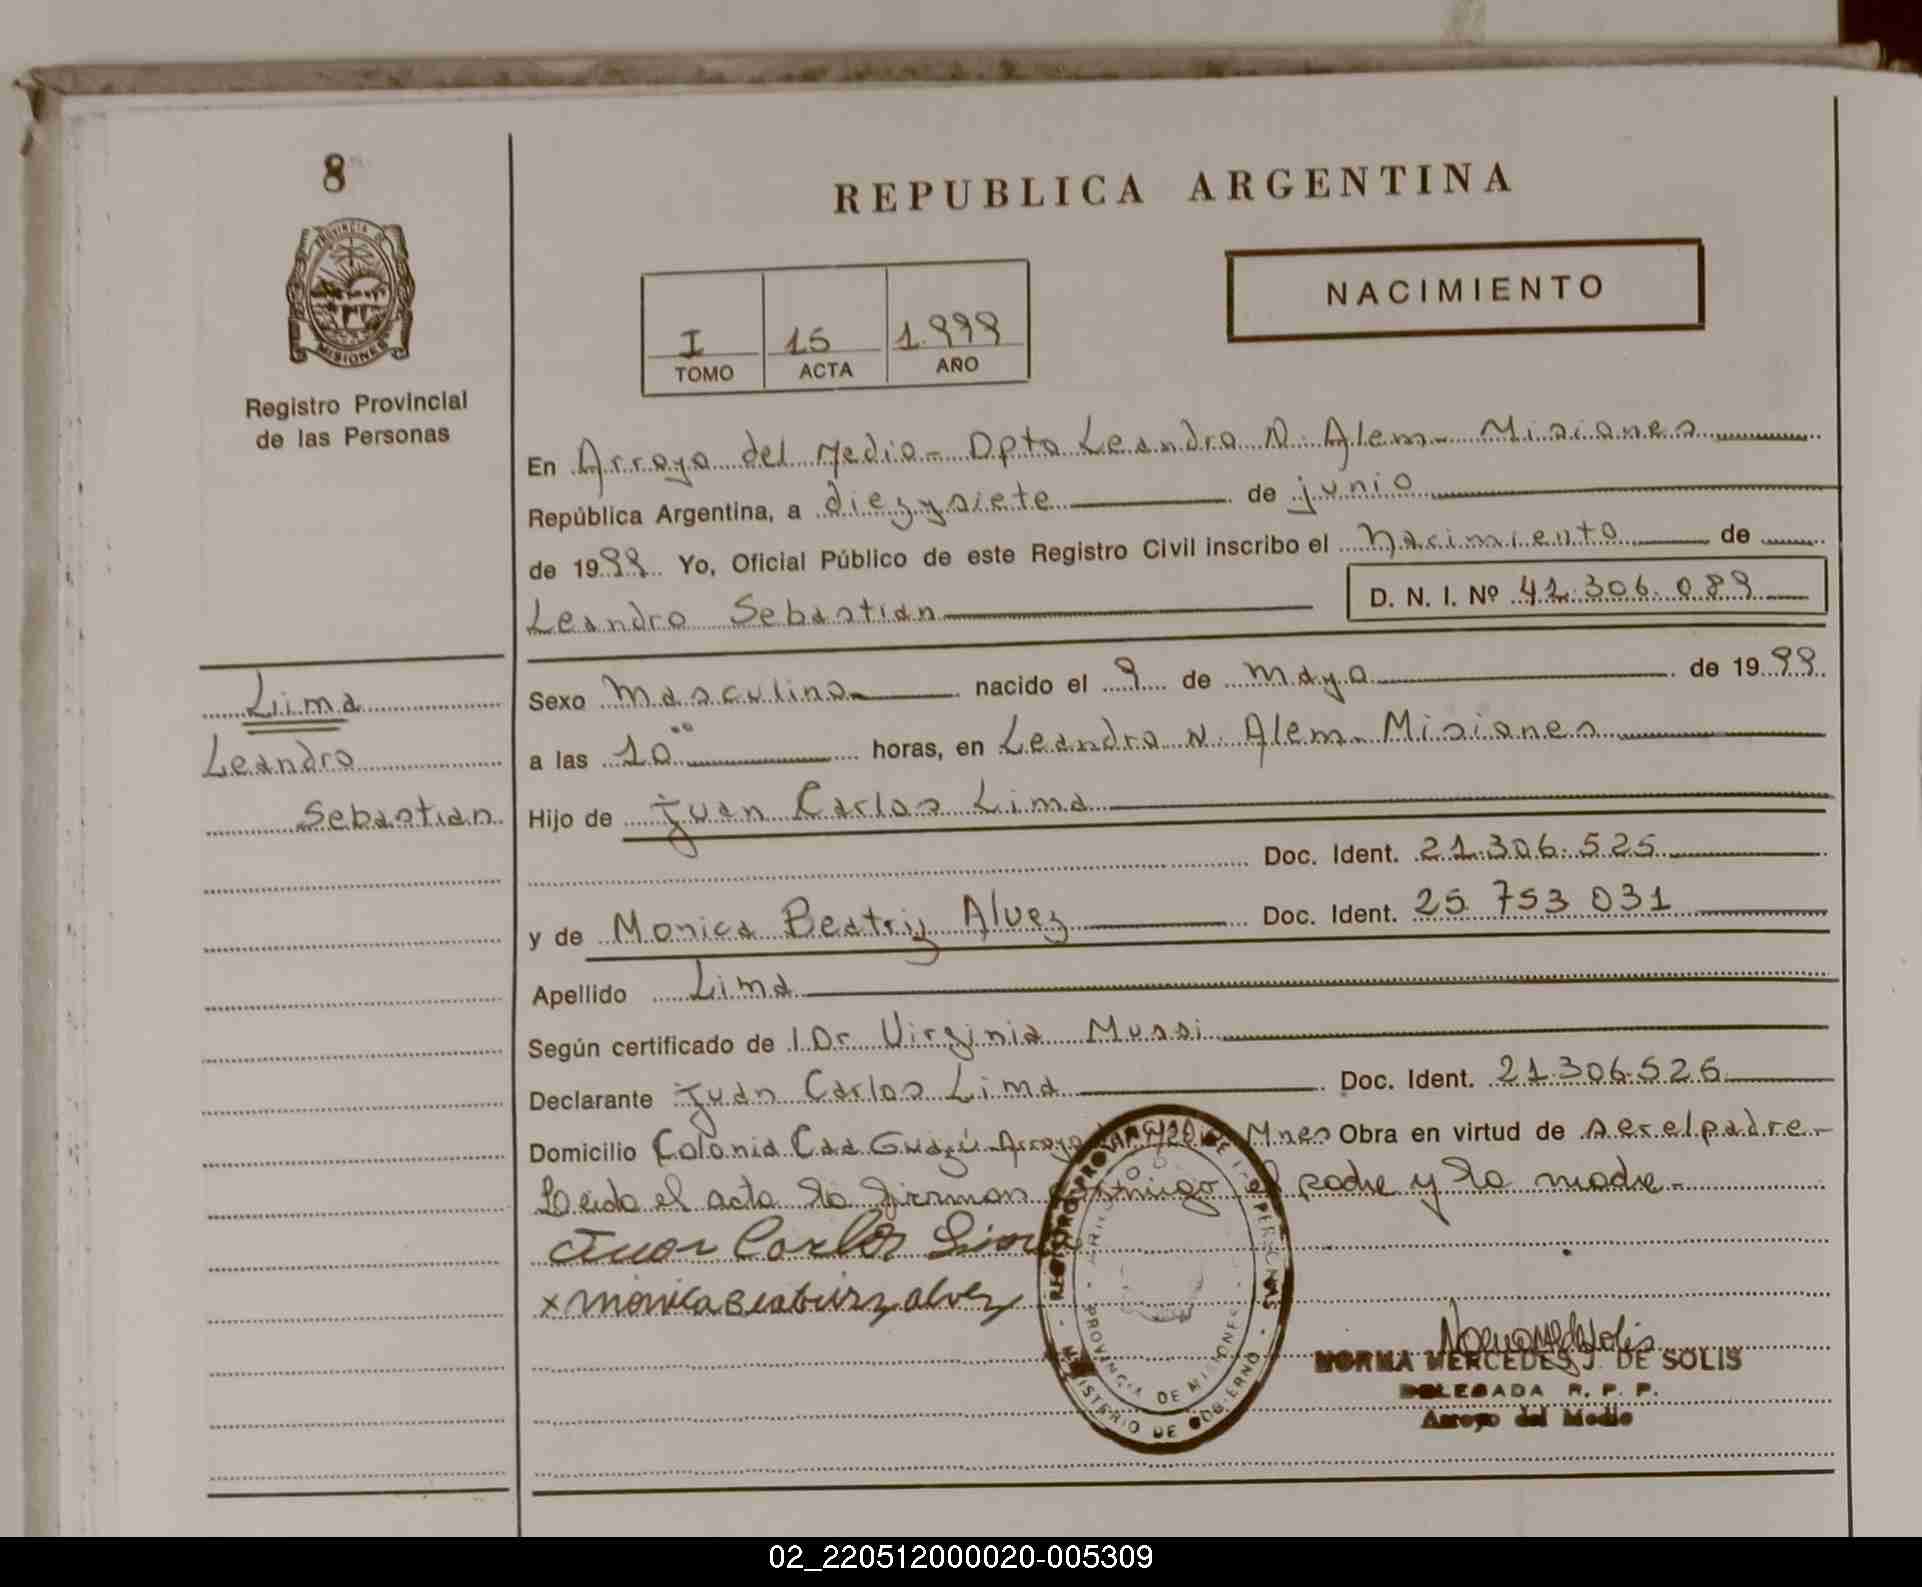 8
PROVINCIA DE
MISIONES
Registro Provincial
de las Personas
REPUBLICA ARGENTINA
NACIMIENTO
I 15 1.999
TOMO ACTA AÑO
En Arroyo del Medio - Dpto Leandro N. Alem - Misiones
República Argentina, a diezysiete de junio
de 1999 Yo, Oficial Público de este Registro Civil inscribo el Nacimiento de
Leandro Sebastian D. N. I. Nº 42.306.089
Lima
Leandro
Sebastian
Sexo Masculino nacido el 9 de mayo de 1999
a las 10°° horas, en Leandro N. Alem - Misiones
Hijo de Juan Carlos Lima
Doc. Ident. 21.306.525
y de Monica Beatriz Alvez Doc. Ident. 25 753 031
Apellido Lima
Según certificado de l Dr Virginia Mussi
Declarante Juan Carlos Lima Doc. Ident. 21.306.525
Domicilio Colonia Caa Guazú Arroyo Mnes Obra en virtud de ser el padre -
Leido el acta la firman conmigo el padre y la madre -
Juan Carlos Lima
x monica Beatriz alvez
REGISTRO PROVINCIAL DE LAS PERSONAS
PROVINCIA DE MISIONES
MINISTERIO DE GOBIERNO
NORMA MERCEDES J. DE SOLIS
DELEGADA R. P. P.
Arroyo del Medio
02_220512000020-005309